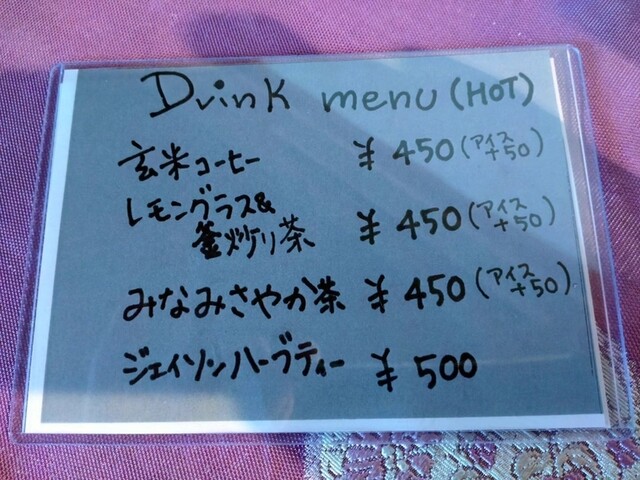 Drink menu (HOT)
玄米コーヒー ¥450 (アイス+50)
レモングラス&
釜炒り茶 ¥450 (アイス+50)
みなみさやか茶 ¥450 (アイス+50)
ジェイソンハーブティー ¥500